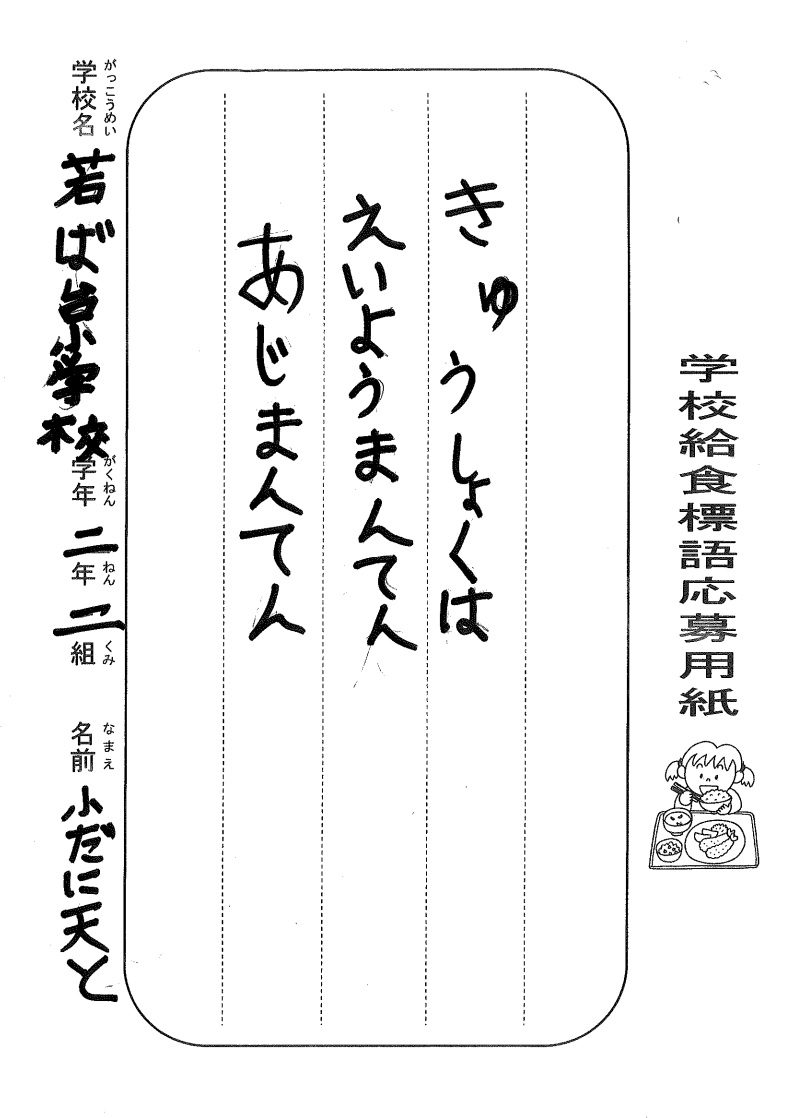 学校給食標語応募用紙
きゅうしょくは
えいようまんてん
あじまんてん
がっこうめい
学校名 若ば台小学校
がくねん ねん くみ
学年 二年 二組
なまえ
名前 小だに天と